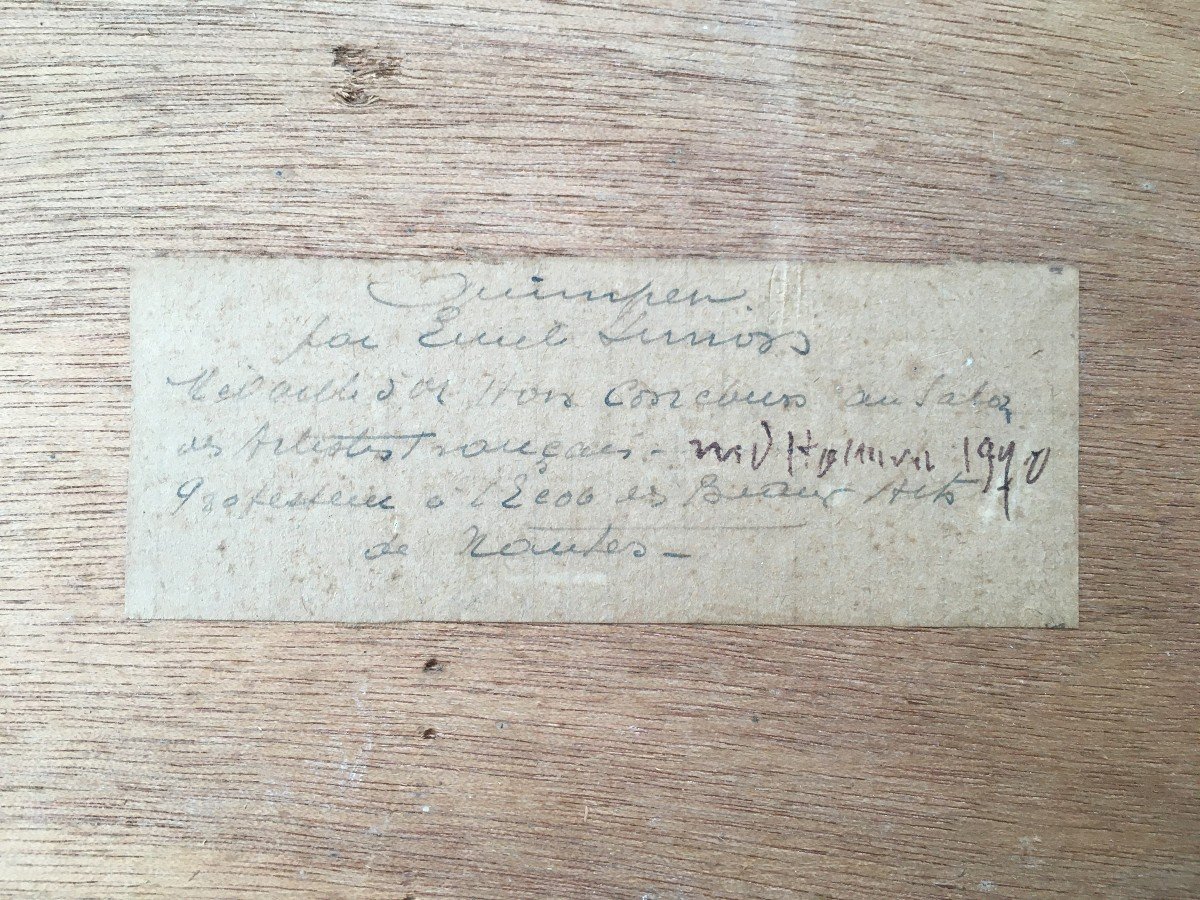 Quimper
par Emile Simon
Médaille d'or Hors Concours au Salon
des Artistes Français - 1940
Professeur à l'Ecole des Beaux Arts
de Nantes -